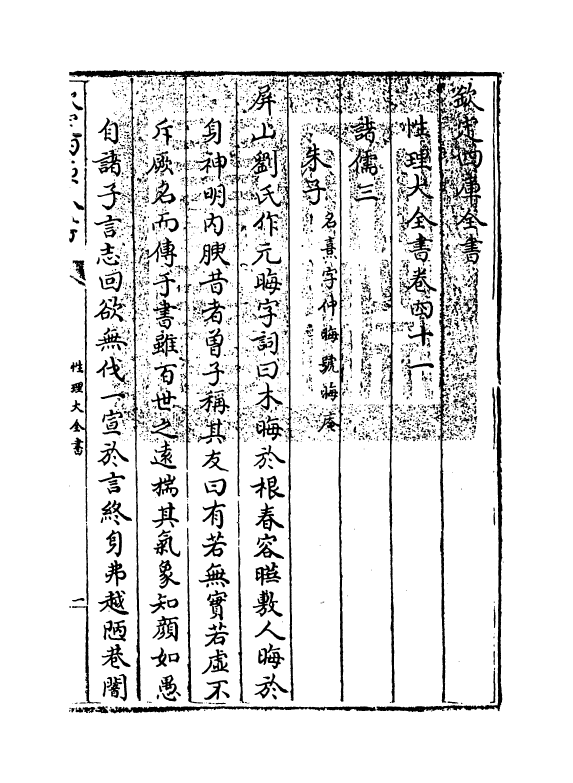 欽定四庫全書
性理大全書卷四十一
諸儒三
朱子名熹字仲晦號晦庵
屏山劉氏作元晦字詞曰木晦於根春容曄敷人晦於
身神明内腴昔者曾子稱其友曰有若無實若虛不
斥厥名而傳于書雖百世之逺揣其氣象知顔如愚
自諸子言志回欲無伐一宣於言終身弗越陋巷闇
性理大全書
一